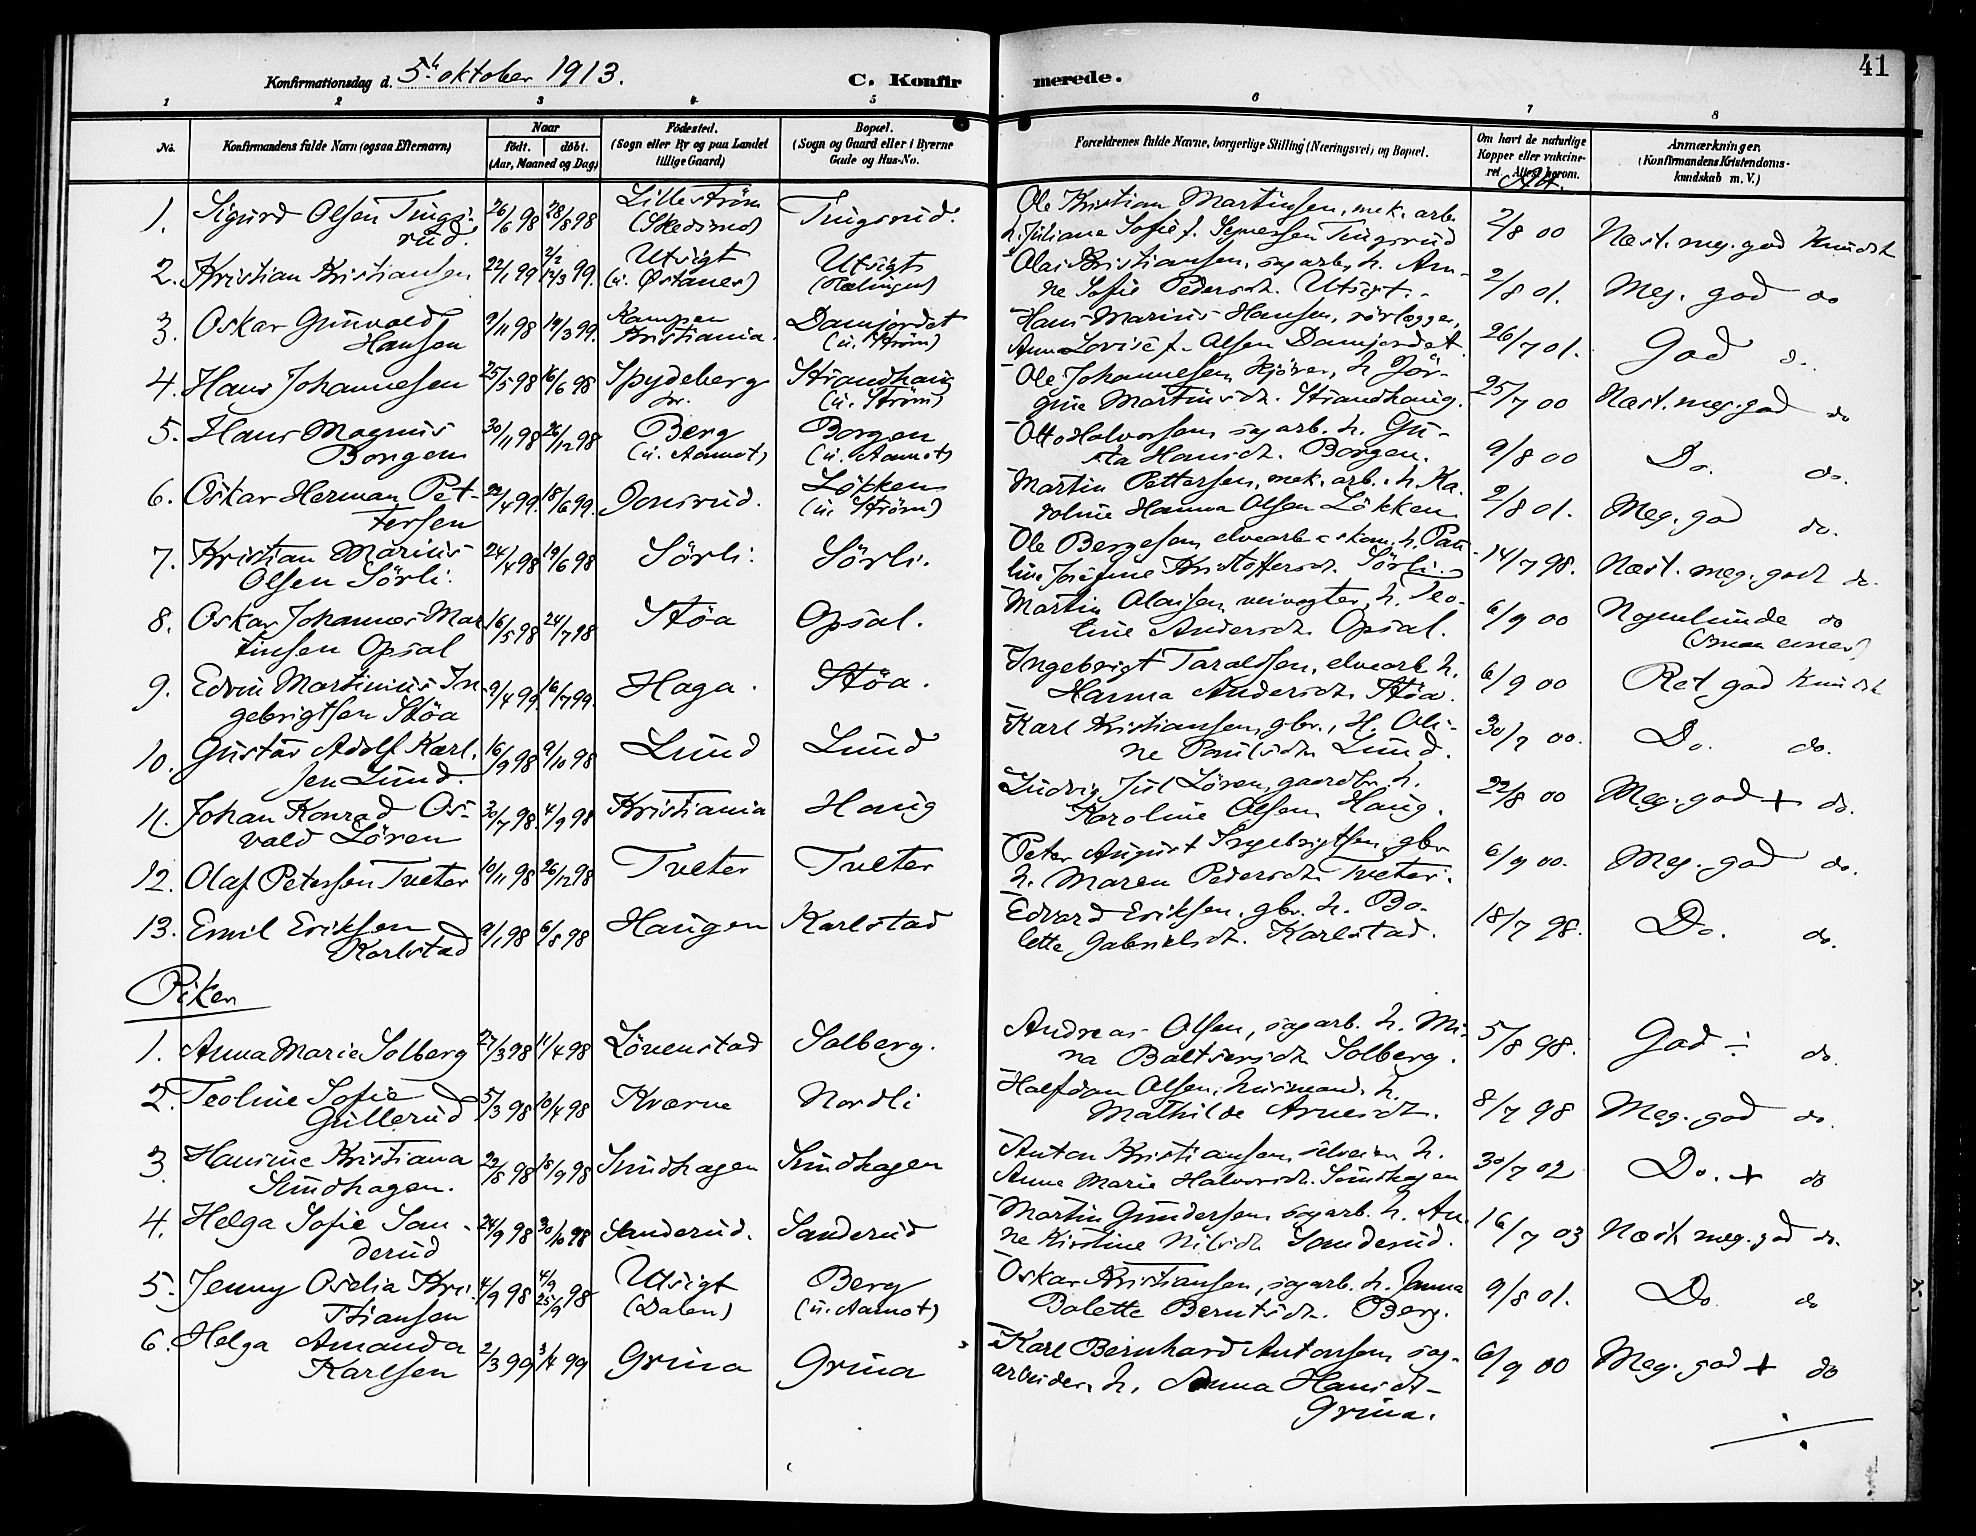 Konfirmationsdag d. 5te oktober 1913.
C. Konfirmerede.
41
1 2 3 4 5 6 7 8
No.
Konfirmandens fulde Navn (ogsaa Efternavn)
Naar
født. døbt.
(Aar, Maaned og Dag)
Fødested.
(Sogn eller By og paa Landet
tillige Gaard)
Bopæl.
(Sogn og Gaard eller i Byerne
Gade og Hus-No.
Forældrenes fulde Navne, borgerlige Stilling (Næringsvei) og Bopæl.
Om havt de naturlige
Kopper eller vakcine-
ret. Attest herom.
Anmærkninger.
(Konfirmandens Kristendoms-
kundskab m. V.)
1. Sigurd Olsen Tings- 26/6 98 28/8 98 Lilleström Tingsrud. Ole Kristian Martinsen, mek. arb. 2/8 00 Næst. meg. god Kundsk
rud. (Skedsmo) h. Juliane Sofie f. Tingsrud
2. Kristian Kristiansen 22/1 99 2/2 14/3 99. Utsigt Utsigt Olai Kristiansen, sagarb. h. An- 2/8 01. Meg. god do
(u. Østanes) (Rælingen) ne Sofie Pedersdt. Utsigt.
3. Oskar Gunvald 9/11 98 19/3 99. Kampen Damjordet Hans Marius Hansen, rörlægger, 26/7 01. God do.
Hansen Kristiania. (u. Ström) Anna Lovise f. Olsen Damjordet.
4. Hans Johannesen 25/5 98 16/6 98 Spydeberg Strandhaug Ole Johannesen Kjörer, h. Jör- 25/7 00 Næst. meg. god do
pr. (u. Ström) gine Martinsdt. Strandhaug.
5. Hans Magnus 30/11 98 26/12 98 Berg Borgen Otto Halvorsen, sagarb. h. Gu- 9/8 00 Do. do.
Borgen (u. Aamot) (u. Aamot) sta Hansdt. Borgen.
6. Oskar Herman Pet- 22/4 99. 18/6 99. Lökken Martin Pettersen, mek. arb. h. Ka- 2/8 01. Meg. god do.
tersen (u. Ström) roline Hanna Olsen Lökken
7. Kristian Marius 24/4 98 19/6 98 Sörli. Sörli. Ole Bergesen, elvearb. h. Pau- 14/7 98. Næst. meg. godt do.
Olsen Sörli. line Josefine Kristoffersdt. Sörli.
8. Oskar Johannes Mar- 16/5 98 24/7 98 Stöa Opsal. Martin Olaisen, veivogter, h. Teo- 6/9 00 Nogenlunde do
tinsen Opsal line Andersdt. Opsal.
9. Edvin Martinius In- 9/4 99. 16/7 99. Haga. Stöa. Ingebrigt Taraldsen, elvearb. h. 6/9 00 Ret god Kundsk
gebrigtsen Stöa Hanna Andersdt. Stöa.
10. Gustav Adolf Karl- 16/9 98 9/10 98 Lund Lund Karl Kristiansen, gbr., h. Oli- 30/7 00. Do. do.
sen Lund. ne Paulsdt. Lund.
11. Johan Konrad Os- 30/7 98. 4/9 98 Kristiania Haug Ludvig Jul Lören, gaardbr. h. 22/8 00 Meg. god + do.
vald Lören Karoline Olsen Haug.
12. Olaf Petersen Tveter 10/11 98 26/12 98 Tveter Tveter Peter August Ingebrigtsen, gbr. 6/9 00. Meg. god do.
h. Maren Pedersdt. Tveter.
13. Emil Eriksen 9/1 98 6/8 98 Haugen Karlstad Edvard Eriksen, gbr. h. Bo- 18/7 98. Do. do.
Karlstad lette Gabrielsdt. Karlstad.
Piker
1. Anna Marie Solberg 27/3 98 11/4 98 Lövenstad Solberg. Andreas Olsen, sagarb. h. Mi- 5/8 98. God ÷ do.
na Baltsersdt. Solberg.
2. Teoline Sofie 5/3 98 10/4 98 Kværne Nordli Halfdan Olsen, husmand, h. 8/7 98 Meg. god do.
Gullerud Mathilde Arnesdt.
3. Hansine Kristiana 22/8 98 18/9 98 Sundhagen Sundhagen Anton Kristiansen, h. 30/7 02 Do. + do
Sundhagen. Anne Marie Halvorsdt. Sundhagen
4. Helga Sofie San- 24/9 98 30/10 98 Sanderud. Sanderud Martin Gundersen, sagarb. h. An- 16/7 03 Næst meg. god do.
derud ne Kirstine Nilsdt. Sanderud.
5. Jenny Oselia Kri- 4/9 98 4/9 25/9 98 Utsigt Berg Oskar Kristiansen, sagarb. h. Janna 9/8 01. Do. do
stiansen (Dalen) (u. Aamot) Bolette Berntsdt. Berg.
6. Helga Amanda 2/3 99 3/4 99 Grina Grina Karl Bernhard Antonsen, sag- 6/9 00 Meg. god + do
Karlsen arbeider, h. Anna Hansdt.
Grina.